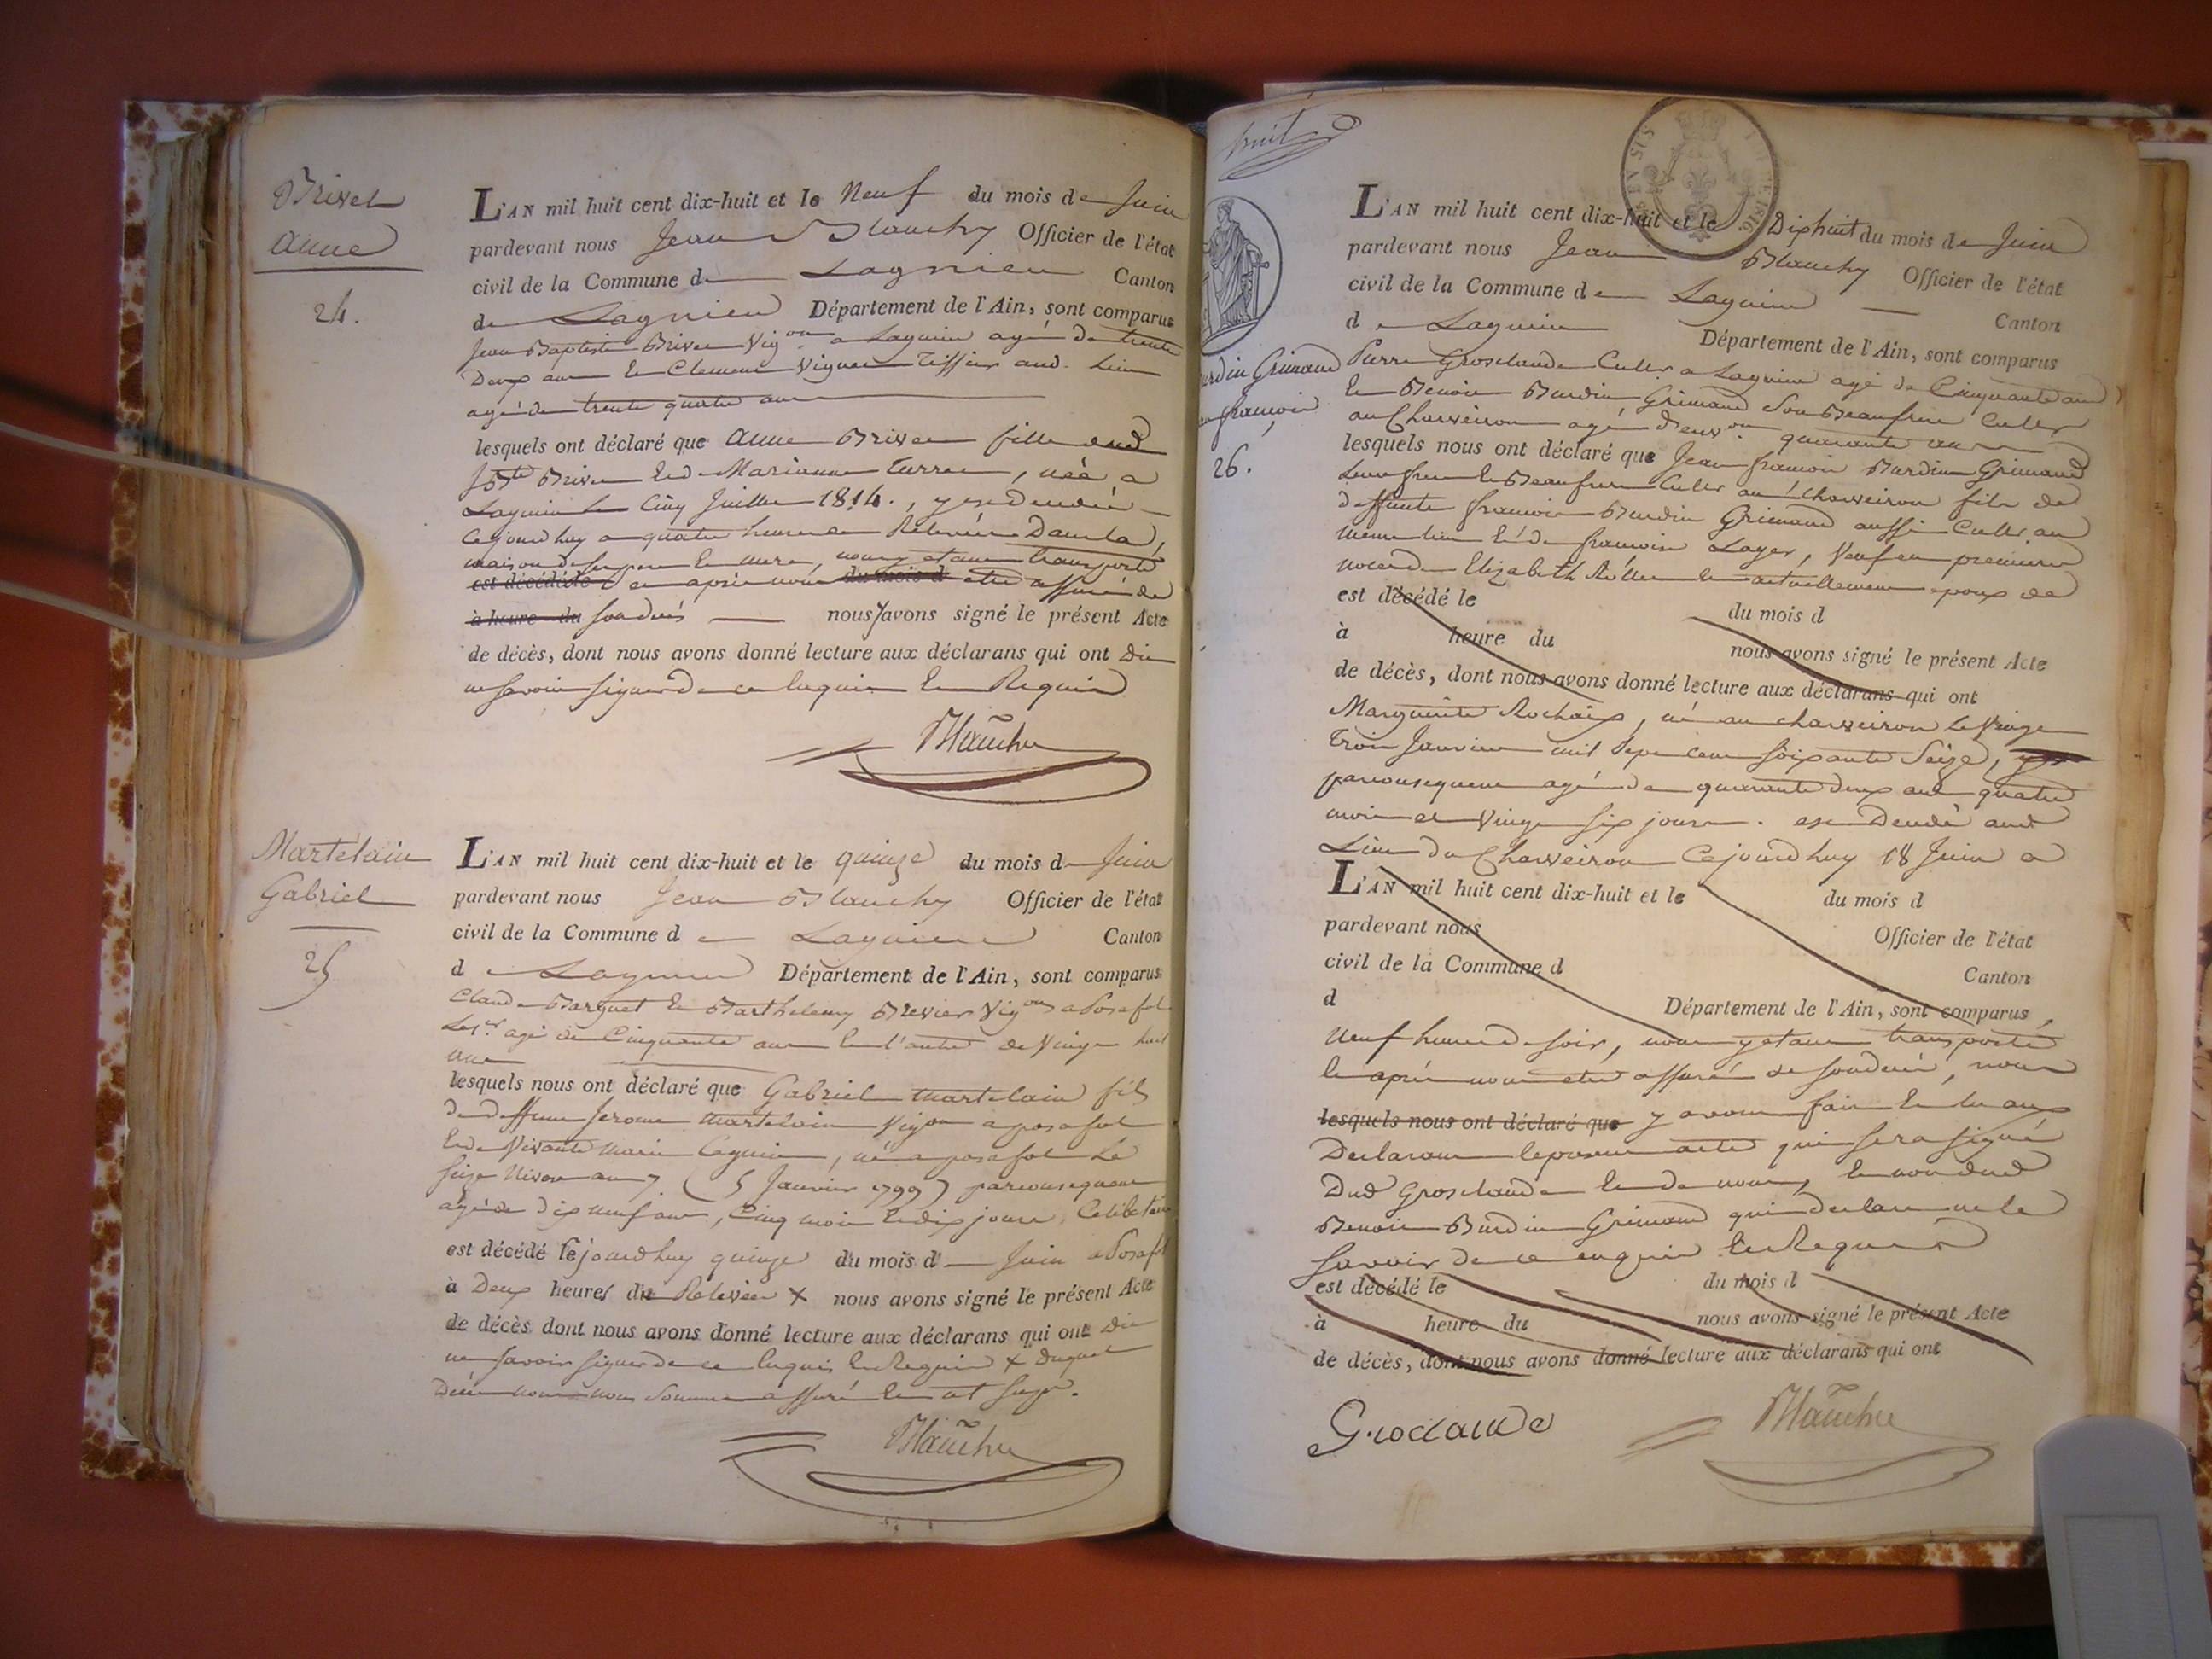 Brivet
Anne
24.
L'AN mil huit cent dix-huit et le Neuf du mois de Juin
pardevant nous Jean Blanchy Officier de l'état
civil de la Commune de Lagnieu Canton
de Lagnieu Département de l'Ain, sont comparus
Jean Baptiste Brivet Vig.on a Lagnieu agé de trente
Deux ans et Clement Viguet Tissier aud. Lieu
agé de trente quatre ans
lesquels ont déclaré que Anne Brivet fille dud
Jn Bte Brivet et de Marianne , née a
Lagnieu le Cinq Juillet 1814., y est decedée
Cejourdhuy a quatre heures de Relevée Dans la
maison de ses pere et mere, nous y etant transporté
est décédé le et après nous du mois d etre assuré de
à heure du son decés nous y avons signé le présent Acte
de décès, dont nous avons donné lecture aux déclarans qui ont Dit
ne savoir signer de ce Enquis et Requis
Blanchy
Martelain
Gabriel
25
L'AN mil huit cent dix-huit et le quinze du mois de Juin
pardevant nous Jean Blanchy Officier de l'état
civil de la Commune de Lagnieu Canton
de Lagnieu Département de l'Ain, sont comparus
Claude Barquet et Barthelemy Brevier Vig.ons a Posafol
Le 1.er agé de Cinquante ans et l'autre de Vingt huit
ans
lesquels nous ont déclaré que Gabriel Martelain fils
de deffunt Jerome Martelain Vigon a posafol
et de Vivante Marie , né a posafol Le
seize Nivose an 7 (5 Janvier 1799) parconsequent
agé de dix neuf ans, Cinq mois et dix jours Celibataire
est décédé Cejourdhuy quinze du mois de Juin a Posafol
à Deux heures du Relevée X nous avons signé le présent Acte
de décès dont nous avons donné lecture aux déclarans qui ont Dit
ne savoir signer de ce Enquis et Requis X duquel
Decés nous nous sommes assuré et ut supr.
Blanchy
huit
Burdin Grimaud
Jean françois
26.
L'AN mil huit cent dix-huit et le Dixhuit du mois de Juin
pardevant nous Jean Blanchy Officier de l'état
civil de la Commune de Lagnieu Canton
de Lagnieu Département de l'Ain, sont comparus
Pierre Groselaude Cult.r a Lagnieu agé de Cinquante ans
et Benoit Burdin Grimaud son Beaufrere Cult.r
au Charveiron agé d'env.on quarante ans
lesquels nous ont déclaré que Jean francois Burdin Grimaud
Leur frere et Beaufrere Cult.r au Charveiron fils de
deffunts francois Burdin Grimaud aussi Cult.r au
meme lieu et de francoise Layer, Veuf en premieres
noces de Elizabeth et actuellement epoux de
est décédé le du mois d
à heure du nous avons signé le présent Acte
de décès, dont nous avons donné lecture aux déclarans qui ont
Marguerite Rochaix, né au charveiron le Vingt
Trois Janvier mil Sept cent soixante Seize,
parconsequent agé de quarante deux ans quatre
mois et Vingt six jours. est Decedé aud
Lieu du Charveiron Cejourdhuy 18 Juin a
L'AN mil huit cent dix-huit et le du mois d
pardevant nous Officier de l'état
civil de la Commune d Canton
d Département de l'Ain, sont comparus
Neuf heures du soir, nous y etant transporté
et après nous etre assuré de son decés, nous
lesquels nous ont déclaré que y avons fait et lu aux
Declarans le present acte qui sera signé
Dud Groselaude et de nous, et non dud
Benoit Burdin Grimaud qui declare ne le
savoir de ce enquis et Requis
est décédé le du mois d
à heure du nous avons signé le présent Acte
de décès, dont nous avons donné lecture aux déclarans qui ont
Groclaude Blanchy